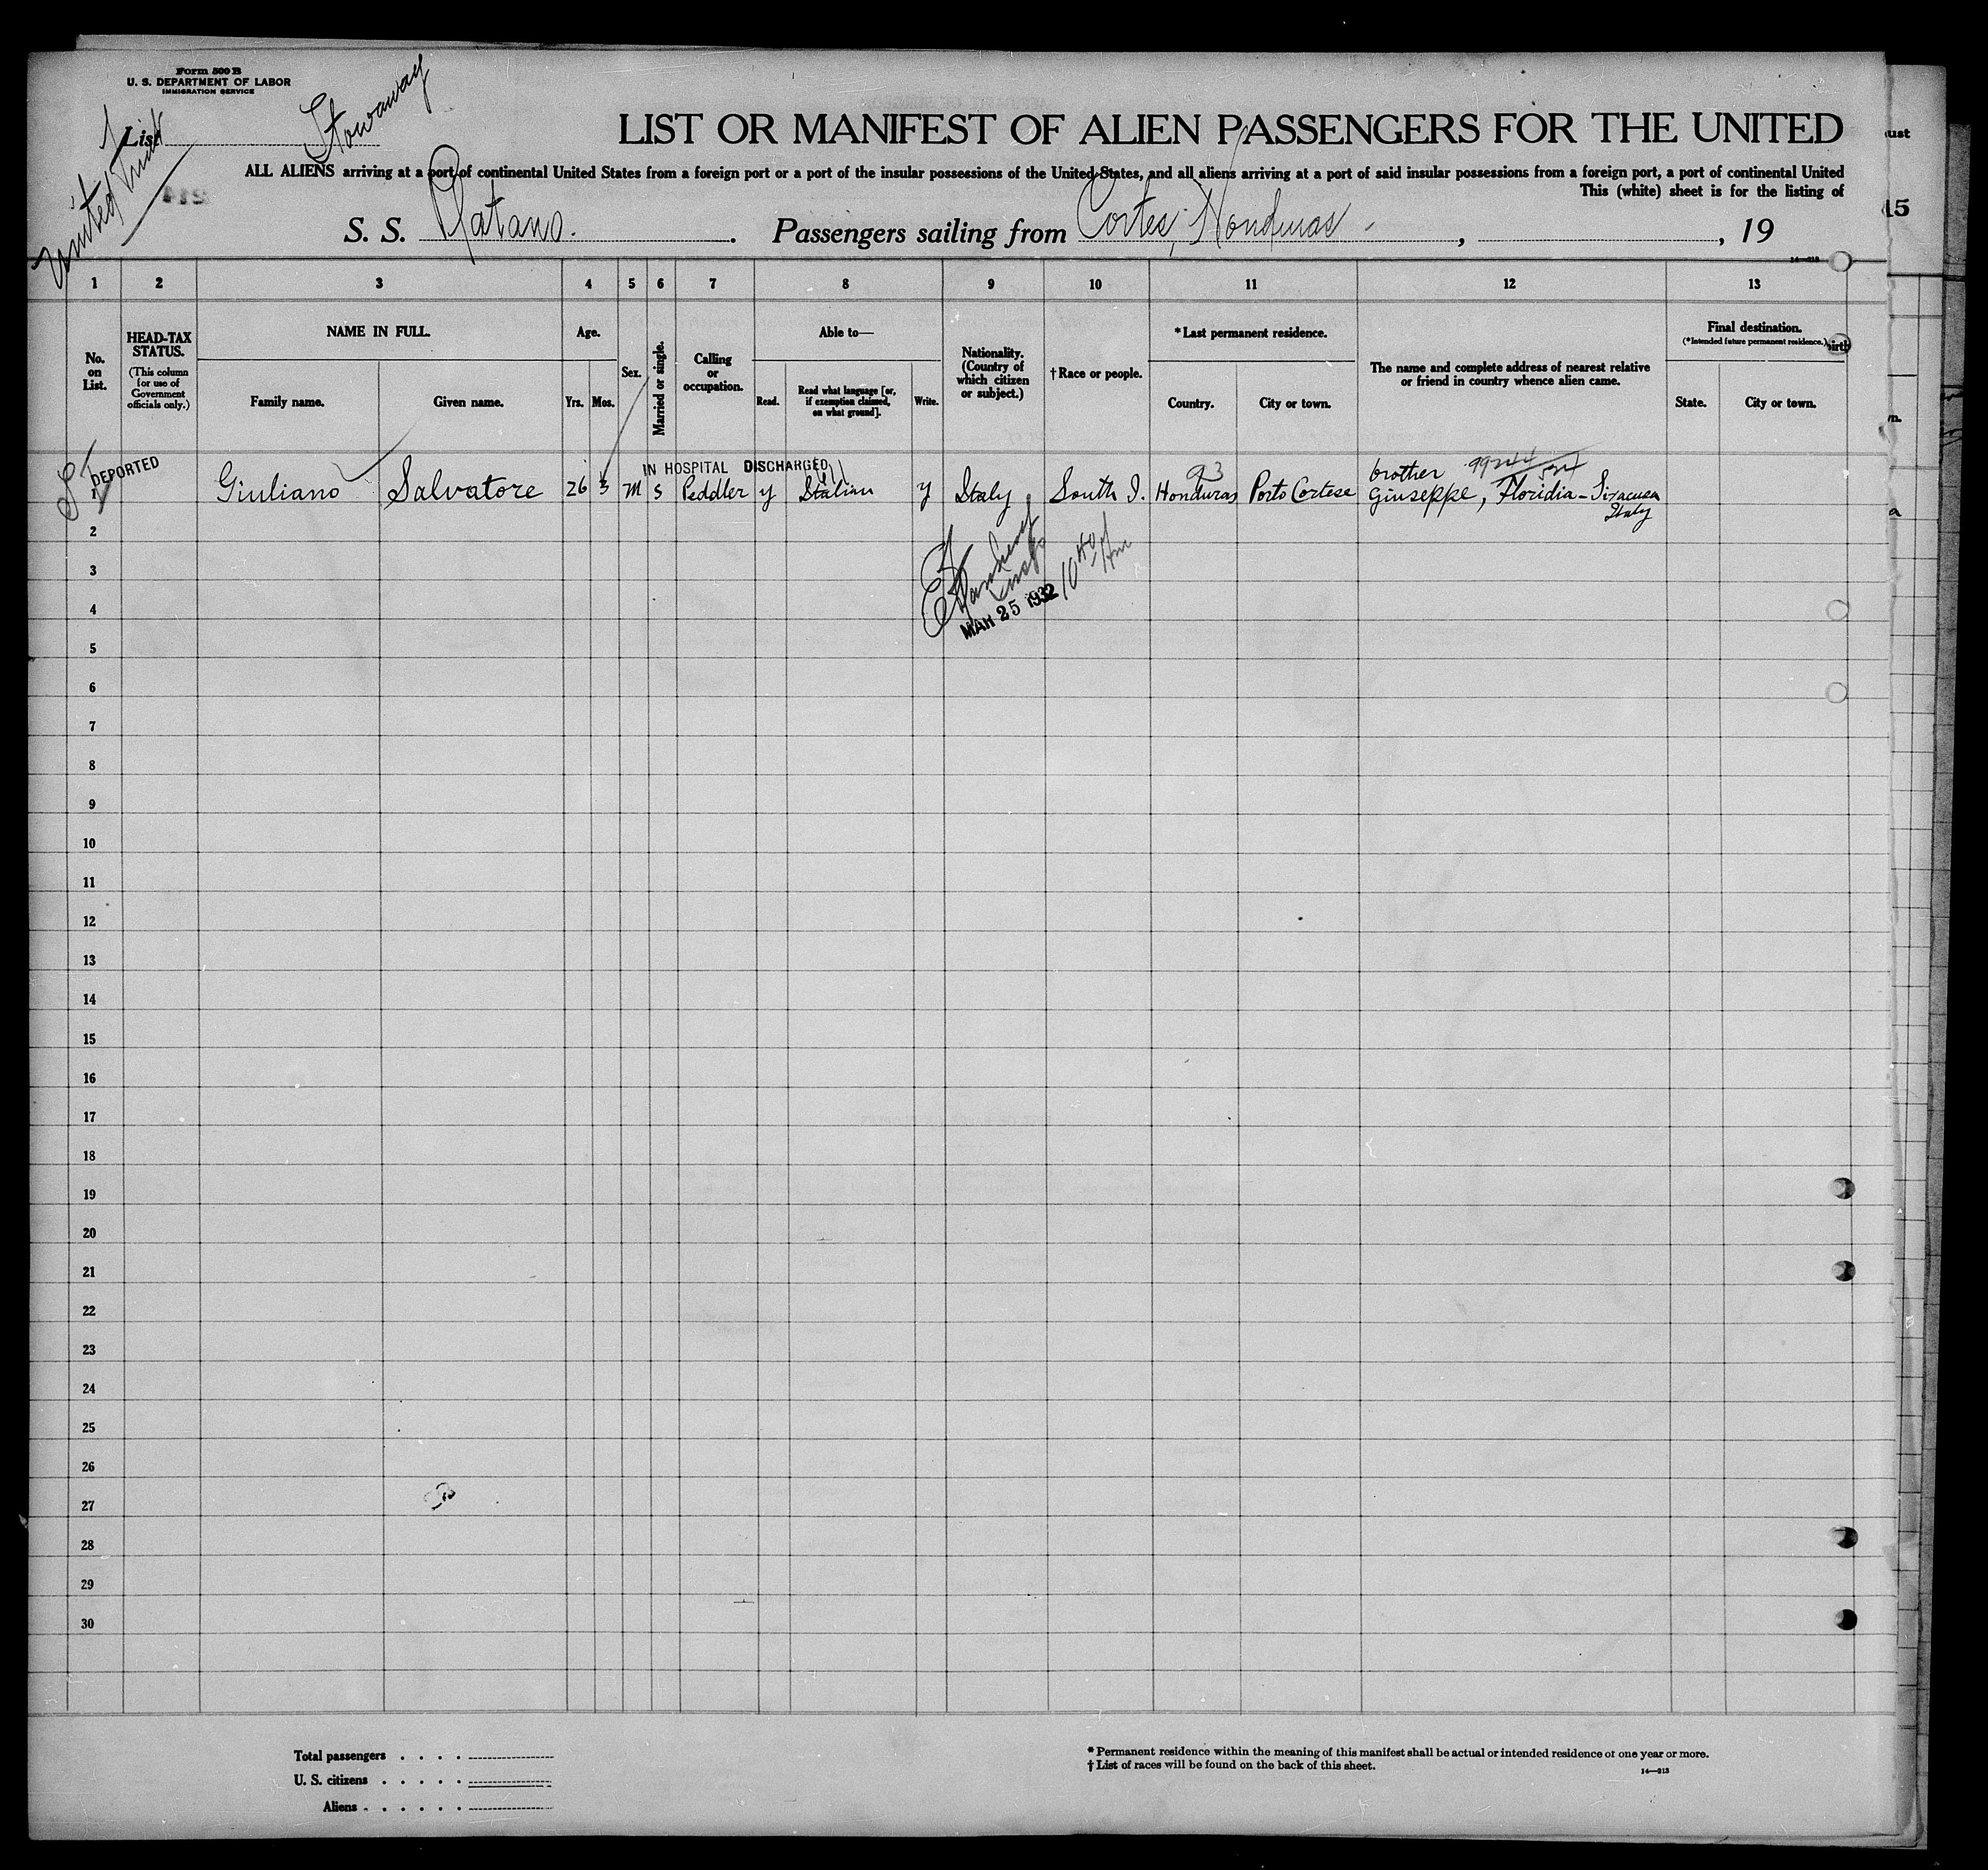 Form 500 B
U. S. DEPARTMENT OF LABOR
IMMIGRATION SERVICE
List 1
Stowaway
United Fruit
LIST OR MANIFEST OF ALIEN PASSENGERS FOR THE UNITED
ALL ALIENS arriving at a port of continental United States from a foreign port or a port of the insular possessions of the United States, and all aliens arriving at a port of said insular possessions from a foreign port, a port of continental United
This (white) sheet is for the listing of
S. S. Platano. Passengers sailing from Cortes, Honduras, , 19
14—213
1 2 3 4 5 6 7 8 9 10 11 12 13
No. on List.
HEAD-TAX STATUS.
(This column for use of Government officials only.)
NAME IN FULL.
Family name. Given name.
Age.
Yrs. Mos.
Sex.
Married or single.
Calling or occupation.
Able to—
Read. Read what language [or, if exemption claimed, on what ground]. Write.
Nationality. (Country of which citizen or subject.)
†Race or people.
*Last permanent residence.
Country. City or town.
The name and complete address of nearest relative or friend in country whence alien came.
Final destination.
(*Intended future permanent residence.)
State. City or town.
DEPORTED
IN HOSPITAL DISCHARGED
93
brother 99244
1 Giuliano Salvatore 26 3 m s Peddler y Italian y Italy South I. Honduras Porto Cortese Giuseppe, Floridia - Siracusa
Italy
MAR 25 1932
10 40 Am
2
3
4
5
6
7
8
9
10
11
12
13
14
15
16
17
18
19
20
21
22
23
24
25
26
27
28
29
30
Total passengers . . . .
U. S. citizens . . . . .
Aliens . . . . . .
* Permanent residence within the meaning of this manifest shall be actual or intended residence of one year or more.
† List of races will be found on the back of this sheet.
14—213
ust
15
birth